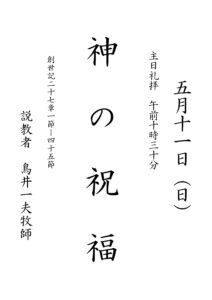 五月十一日（日）
主日礼拝　午前十時三十分
神の祝福
創世記二十七章一節ー四十五節
説教者　鳥井一夫牧師